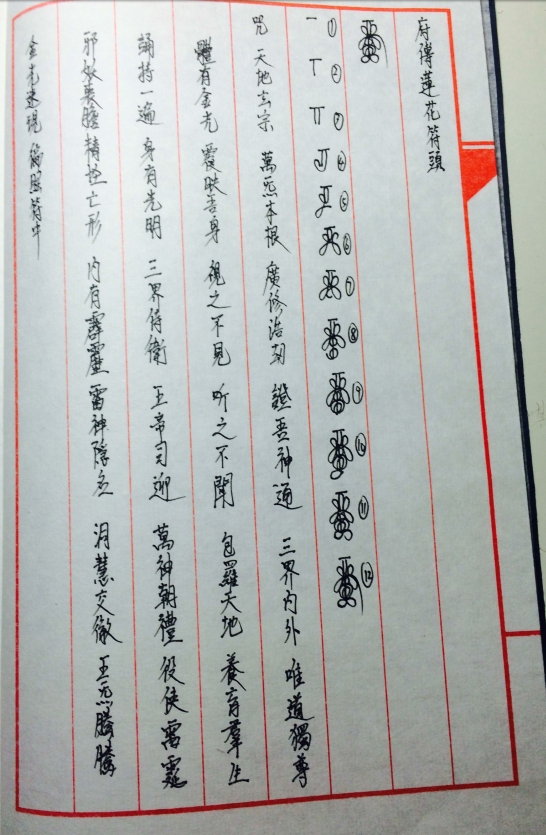 府傳蓮花符頭
① ② ③ ④ ⑤ ⑥ ⑦ ⑧ ⑨ ⑩ ⑪ ⑫
咒 天地玄宗 萬炁本根 廣修浩劫 證吾神通 三界內外 唯道獨尊
體有金光 覆映吾身 視之不見 听之不聞 包羅天地 養育羣生
誦持一遍 身有光明 三界侍衛 五帝司迎 萬神朝禮 役使雷霆
邪妖喪膽 精怪亡形 內有霹靂 雷神隱名 洞慧交徹 五炁騰騰
金光速現 倫照符中